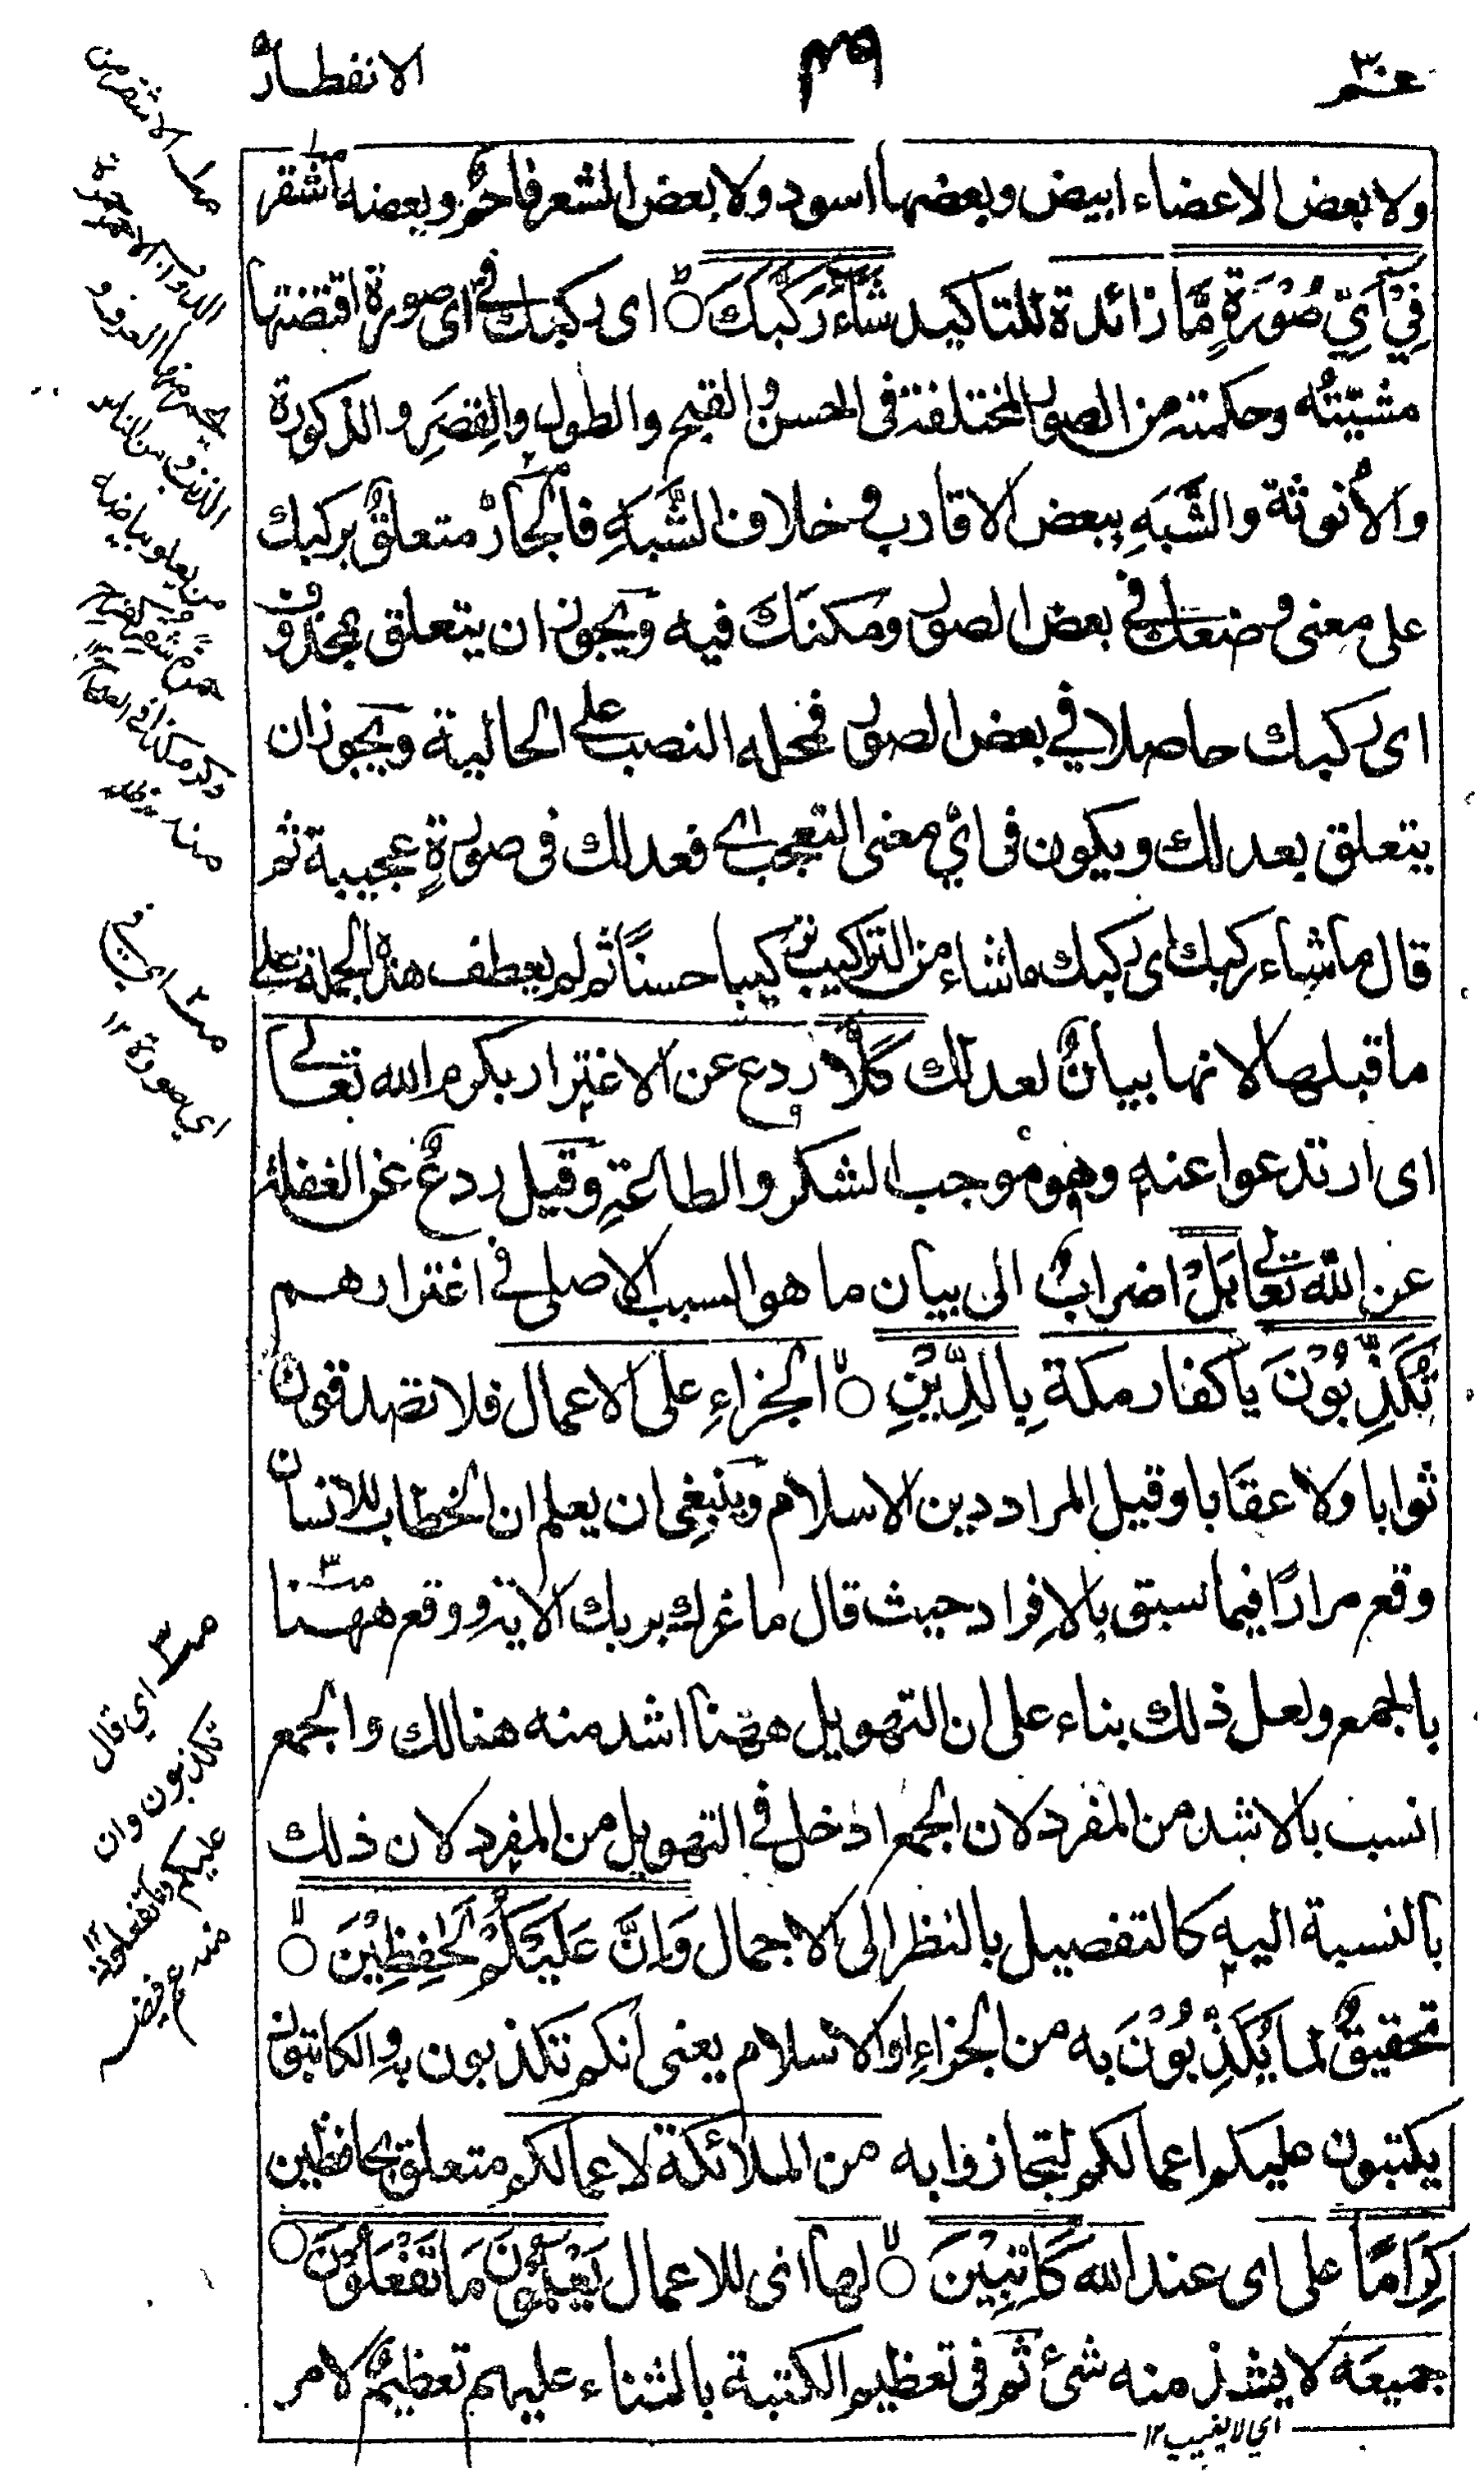 عم ٣٠
٣٩
الانفطار
ولا بعض الاعضاء ابيض وبعضها اسود ولا بعض الشعر فاحم وبعضه اشقر
فِيْٓ اَيِّ صُوْرَةٍ مَّا زائدة للتاكيد شَآءَ رَكَّبَكَ اى ركبك فى اى صورة اقتضتها
مشيّتُه وحكمته من الصور المختلفة فى الحسن والقبح والطول والقِصَرِ والذكورة
والأنوثة والشَّبَهِ ببعض الاقارب وخلاف الشَّبَهِ فالجارّ متعلقٌ بركبك
على معنى وضعك فى بعض الصور ومكنَكَ فيه ويجوز ان يتعلق بمحذوف
اى ركبك حاصلا في بعض الصور فمحله النصب على الحالية ويجوز ان
يتعلق بعدلك ويكون فى اىّ معنى التعجب اى فعدلك فى صورةٍ عجيبة ثم
قال ما شاء ركبك اى ركبك ما شاء من التراكيب تركيبا حسنًا ثم لم يعطف هذه الجملة على
ما قبلها لانها بيانٌ لعدلك كَلَّا ردع عن الاغترار بكرم الله تعالى
اى ارتدعوا عنه وهو موجب الشكر والطاعة وقيل ردعٌ عن الغفلة
عن الله تعالى بَلْ اضرابٌ الى بيان ما هو السبب الاصلى فى اغترارهم
تُكَذِّبُوْنَ يا كفار مكة بِالدِّيْنِ الجزاءِ على الاعمال فلا تصدقون
ثوابا ولا عقابا وقيل المراد دين الاسلام وينبغى ان يعلم ان الخطاب للانسان
وقع مرارًا فيما سبق بالافراد حيث قال ما غرك بربك الاية ووقع ههنا
بالجمع ولعل ذلك بناء على ان التهويل ههنا اشد منه هنالك والجمع
انسب بالاشد من المفرد لان الجمع ادخل فى التهويل من المفرد لان ذلك
بالنسبة اليه كالتفصيل بالنظر الى الاجمال وَاِنَّ عَلَيْكُمْ لَحٰفِظِيْنَ
تحقيقٌ لما يُكَذِّبُوْنَ به من الجزاءِ او الاسلام يعنى انكم تكذبون به والكاتبون
يكتبون عليكم اعمالكم لتجازوا به من الملائكة لاعمالكم متعلق بحافظين
كِرَامًا على اى عند الله كَاتِبِيْنَ لها اى للاعمال يَعْلَمُوْنَ مَا تَفْعَلُوْنَ
جميعَه لا يشذ منه شئ ثم فى تعظيم الكتبة بالثناء عليهم تعظيمٌ لامر
اي لا يغيب ١٢
الاشقر من
من يعلو بياضه
اي في
اي صورة ١٢
اي قال
تكذبون وان
عليكم وما تفعلون